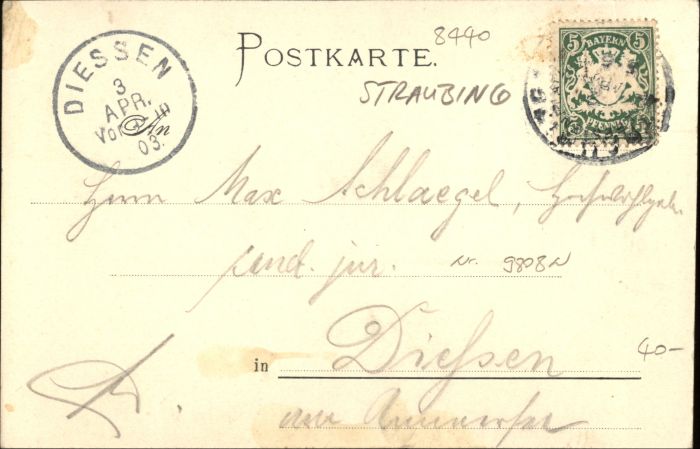 DIESSEN
3
APR.
Vor
03.
POSTKARTE.
8440
STRAUBING
5 BAYERN 5
PFENNIG
An
Herrn Max Schlaegel, Hochwohlgeb.
cand. jur. Nr. 9808N
in Diessen
40-
am Ammersee